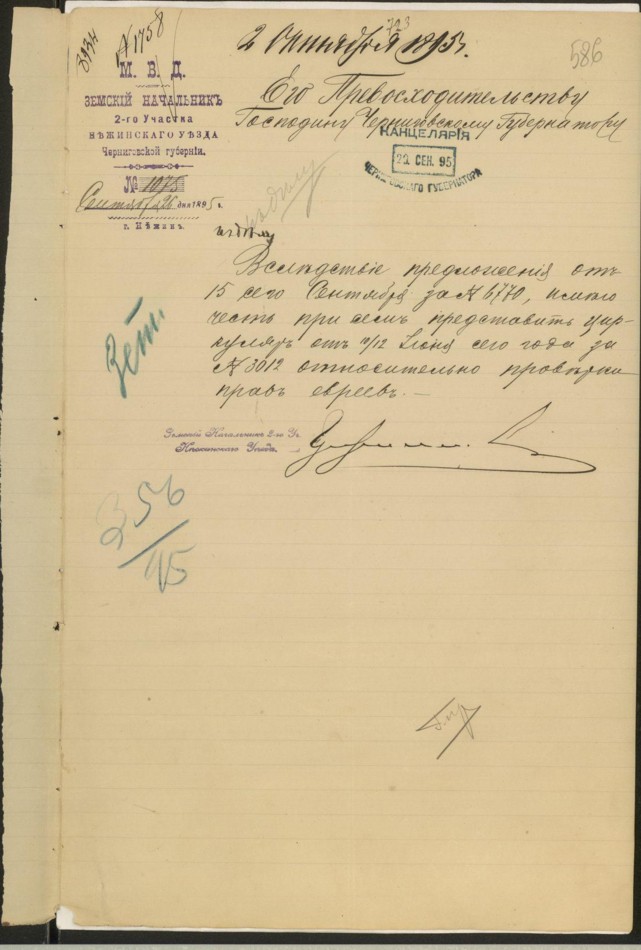 № 1758
586
М. В. Д.
ЗЕМСКІЙ НАЧАЛЬНИКЪ
2-го Участка
НѢЖИНСКАГО УѢЗДА
Черниговской губерніи.
№ 1075
Сентября 26 дня 1895 г.
г. Нѣжинъ.
1895 г.
Его Превосходительству
Господину Черниговскому Губернатору
КАНЦЕЛЯРІЯ
СЕН. 95
ЧЕРНИГОВСКАГО ГУБЕРНАТОРА
Вслѣдствіе предложенія отъ
15 сего Сентября за № 6770, имѣю
честь при семъ представить цир-
куляръ отъ 7/12 Іюня сего года за
№ 3012 относительно провѣрки
правъ евреевъ. —
Земскій Начальникъ 2-го Уч.
Нѣжинскаго Уѣзда.
356/95